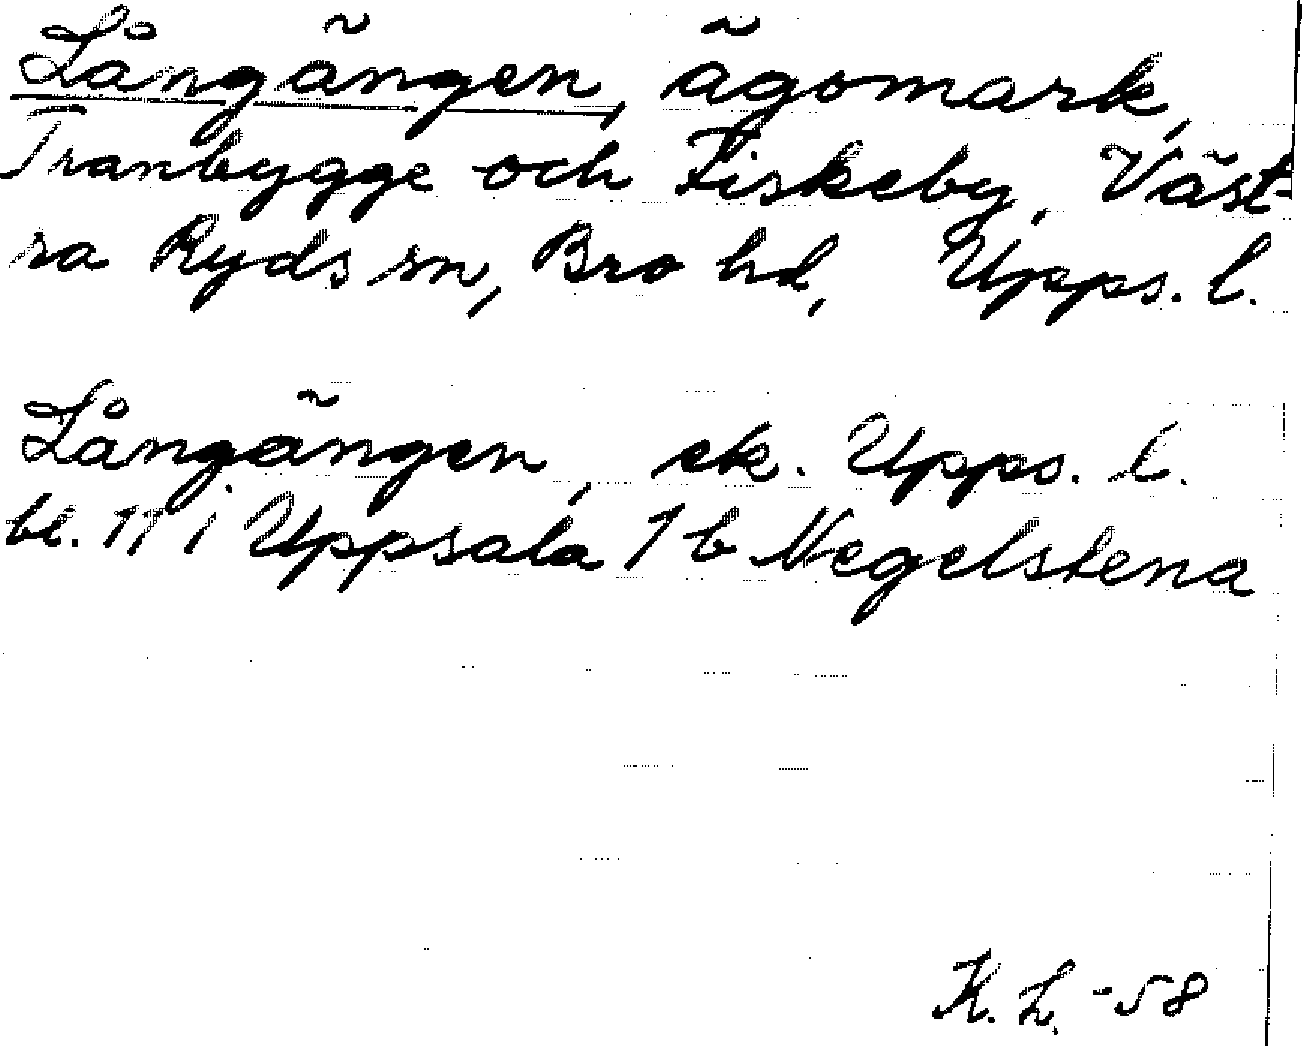 Långängen, ägomark,
Tranbygge och Fiskeby, Väst-
ra Ryds sn, Bro hd, Upps. l.
Långängen, ek. Upps. l.
bl. 17 i Uppsala 1 b Negelstena
K. L. -58